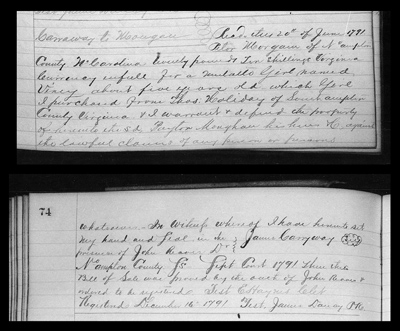 Carraway to Morgan
Recd this 20th of June 1791
of Peter Morgan of N ampton
County No Carolina twenty pounds & Ten Shillings Virginia
Currency in full for a mulatto Girl named
Viney about five years old which Girl
I purchased from Thos Holiday of Southampton
County Virginia & I warrant & defend the property
of her unto the sd Peyton Morghan his heirs &c against
the lawful claims of any person or persons
74
whatsoever. In witness whereof I have hereunto set
my hand and Seal in the James Carraway
presence of John Reams
No ampton County Sc Sept Court 1791 Then this
Bill of Sale was proved by the oath of John Reams &
ordered to be registered Test E Haynes Clek
Registered December 16th 1791 Test, James PR